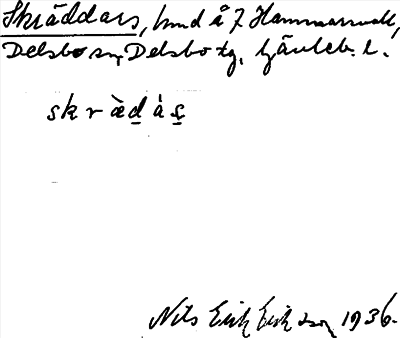 Skräddars, hmd å 7 Hammarvall,
Delsbo sn, Delsbo tg, Gävleb. l.
skræ̀d̲ás̲
Nils Erik Eriksson 1936.